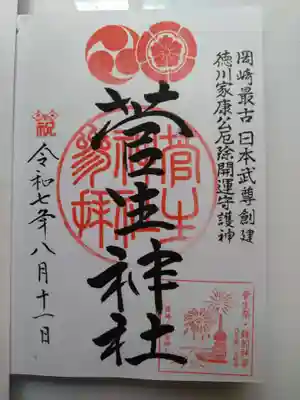 岡崎最古 日本武尊創建
徳川家康公厄除開運守護神
菅生神社
参拝
祝
令和七年八月十一日